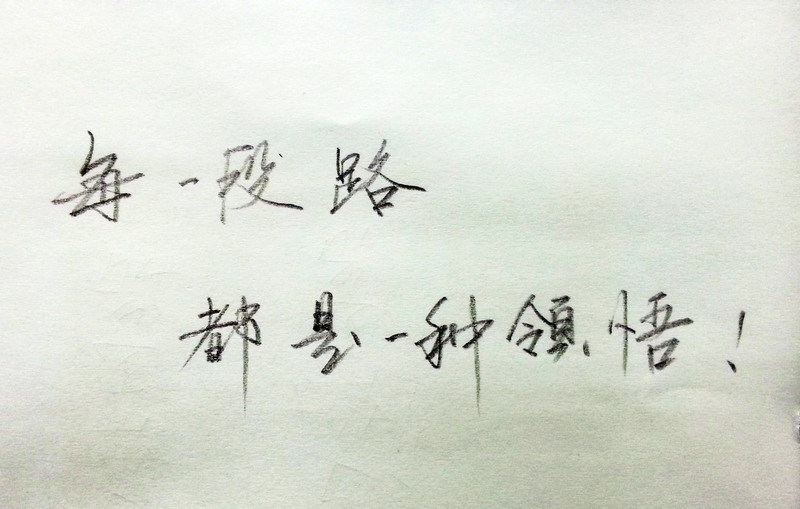 每一段路
都是一种领悟！